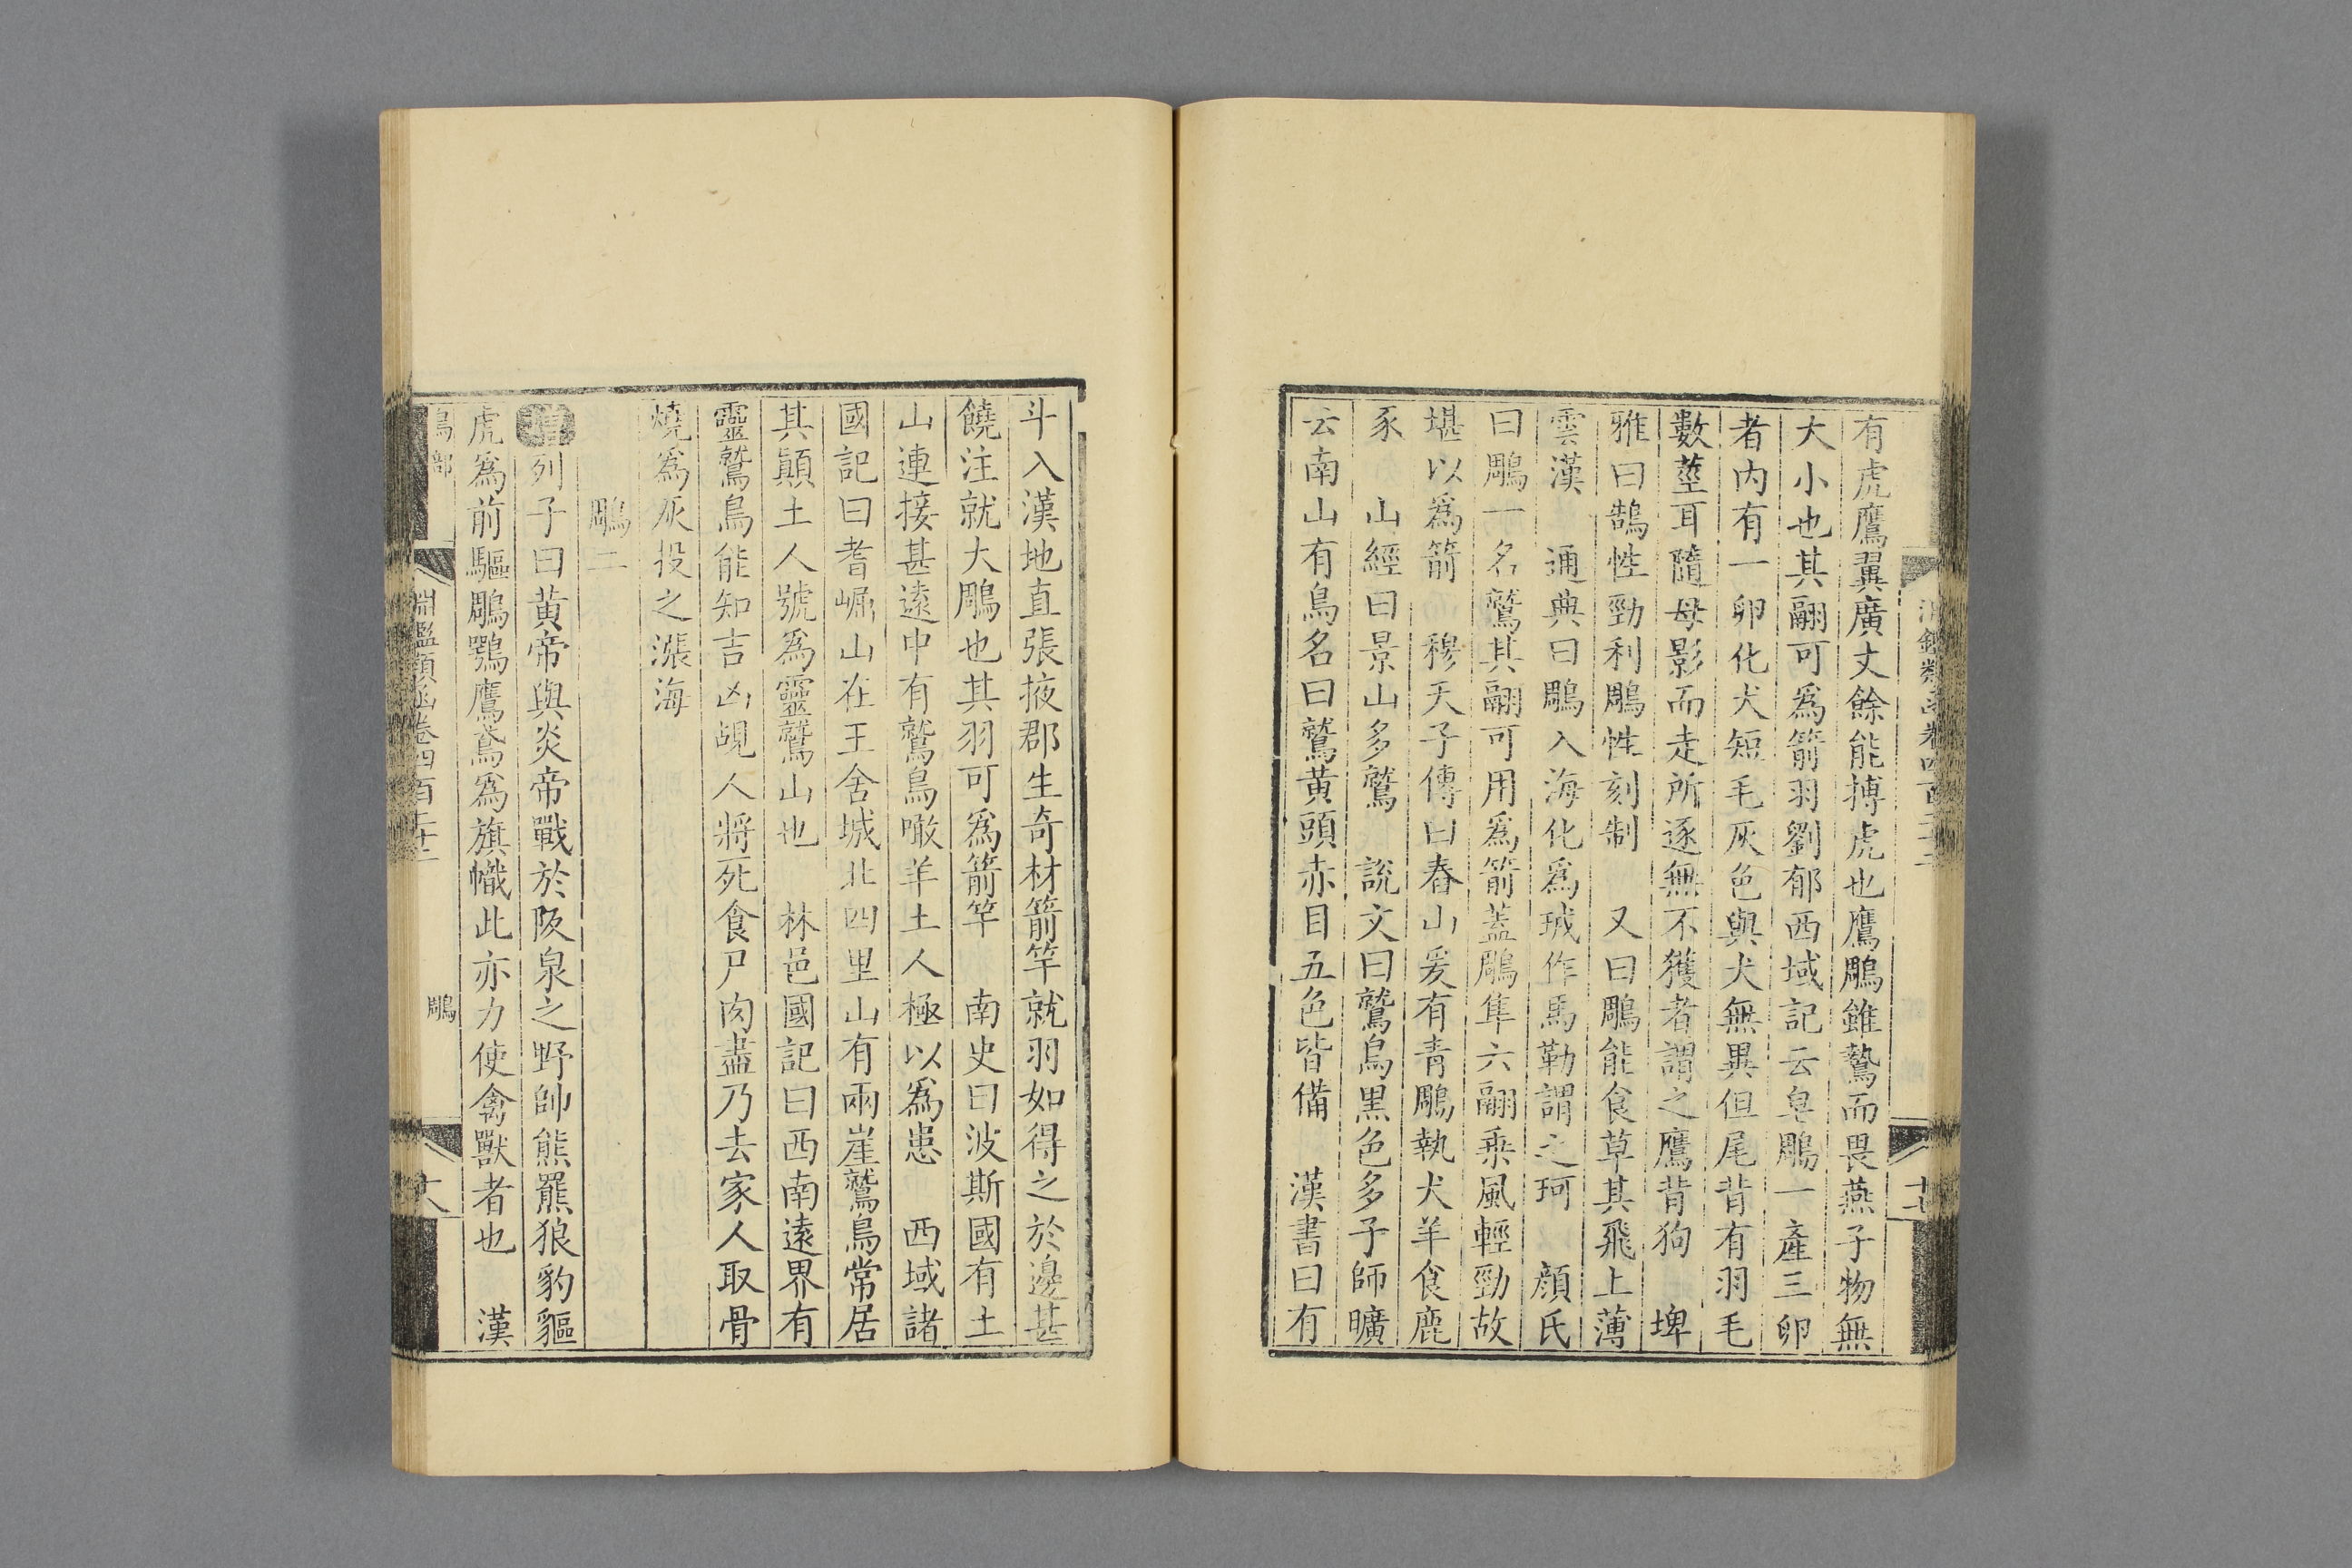 有虎鷹翼廣丈餘能搏虎也鷹鵰雖鷙而畏燕子物無
大小也其翮可爲箭羽劉郁西域記云皁鵰一產三卵
者内有一卵化犬短毛灰色與犬無異但尾背有羽毛
數莖耳隨母影而走所逐無不獲者謂之鷹背狗　埤
雅曰鵠性勁利鵰性刻制　又曰鵰能食草其飛上薄
雲漢　通典曰鵰入海化爲𤤒作馬勒謂之珂　顔氏
曰鵰一名鷲其翮可用爲箭蓋鵰隼六翮乘風輕勁故
堪以爲箭　穆天子傳曰舂山爰有青鵰執犬羊食鹿
豕　山經曰景山多鷲　說文曰鷲鳥黒色多子師曠
云南山有鳥名曰鷲黄頭赤目五色皆備　漢書曰有
斗入漢地直張掖郡生奇材箭竿就羽如得之於邊甚
饒注就大鵰也其羽可爲箭竿　南史曰波斯國有土
山連接甚遠中有鷲鳥噉羊土人極以爲患　西域諸
國記曰耆崛山在王舍城北四里山有兩崖鷲鳥常居
其顚土人號爲靈鷲山也　林邑國記曰西南遠界有
靈鷲鳥能知吉凶覘人將死食尸肉盡乃去家人取骨
燒爲灰投之漲海
鵰二
增列子曰黄帝與炎帝戰於阪泉之野帥熊羆狼豹貙
虎爲前驅鵰鶚鷹鳶爲旗幟此亦力使禽獸者也　漢
鳥部
淵鑑類函卷四百二十二
鵰
十八